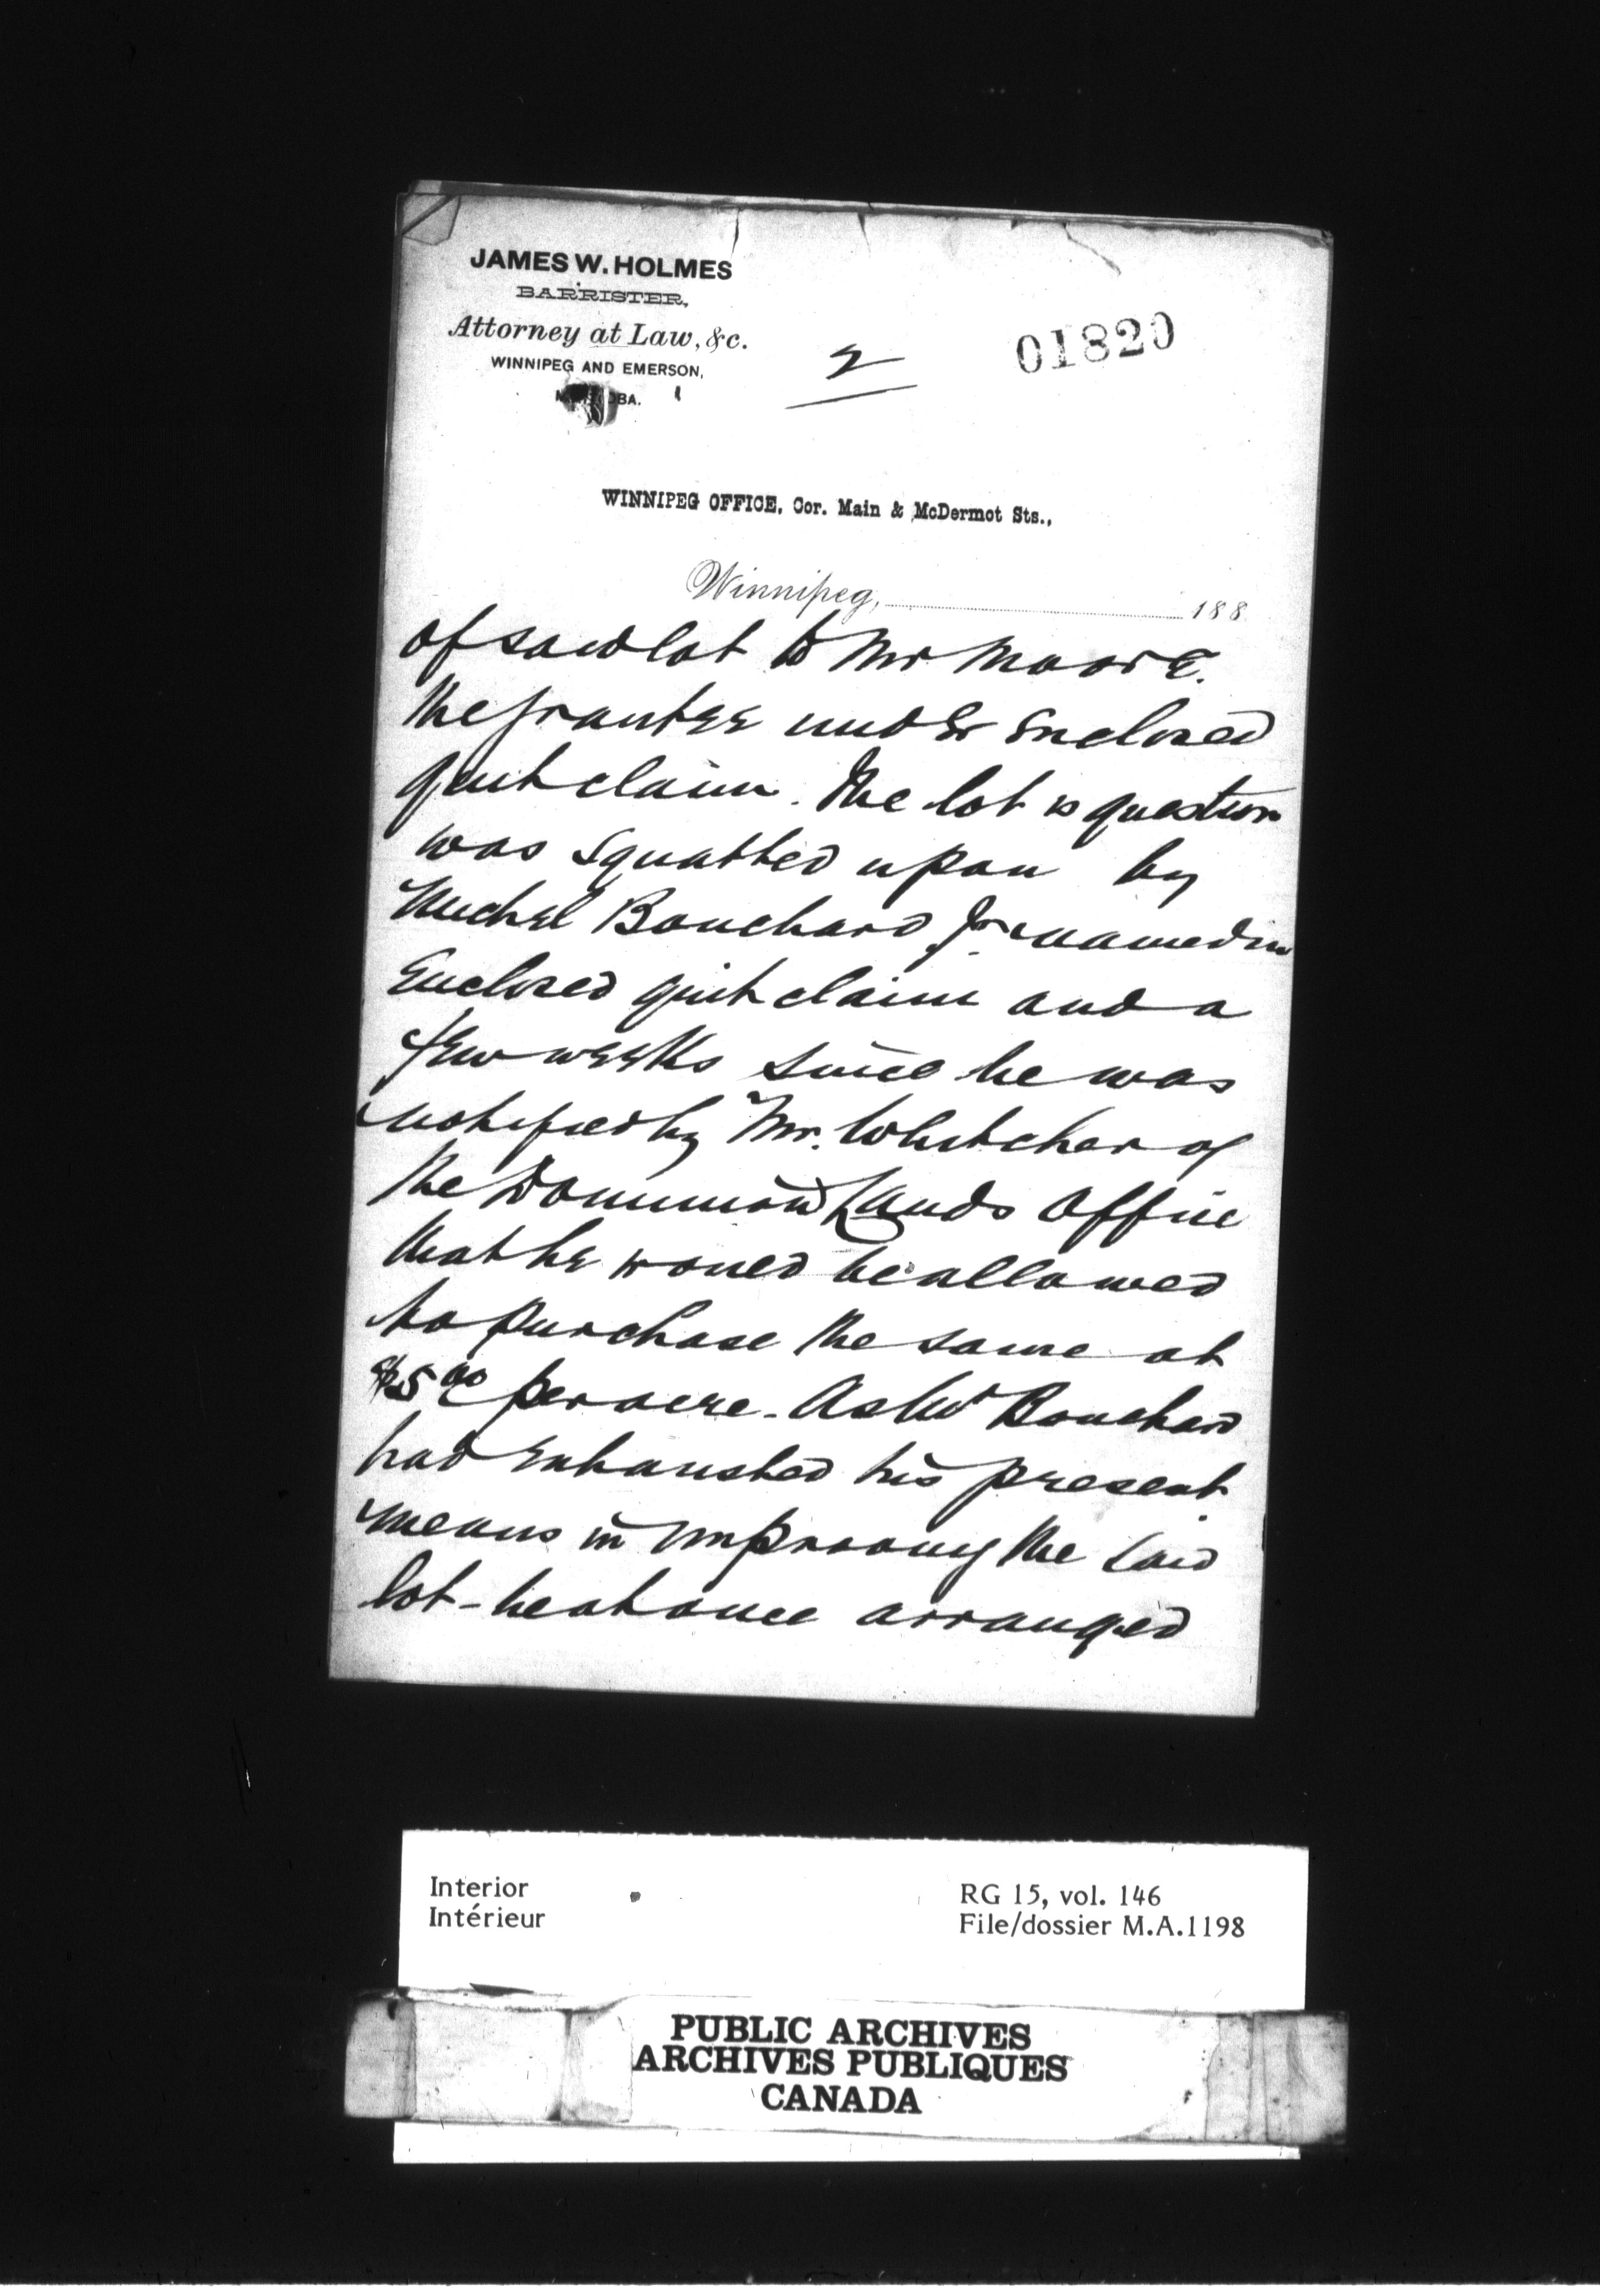 JAMES W. HOLMES
BARRISTER,
Attorney at Law, &c.
WINNIPEG AND EMERSON,
MANITOBA.
2
01820
WINNIPEG OFFICE, Cor. Main & McDermot Sts.,
Winnipeg, 188
of said lot to Mr Moore.
the grantee under enclosed
quit claim. The lot in question
was squatted upon by
Michel Bouchard Jr. named in
Enclosed quit claim and a
few weeks since he was
notified by Mr. Whitcher of
the Dominion Lands Office
that he would be allowed
to purchase the same at
$5.00 per acre. As Mr Bouchard
had exhausted his present
means in improving the said
lot - he at once arranged
Interior
Intérieur
RG 15, vol. 146
File/dossier M.A.1198
PUBLIC ARCHIVES
ARCHIVES PUBLIQUES
CANADA